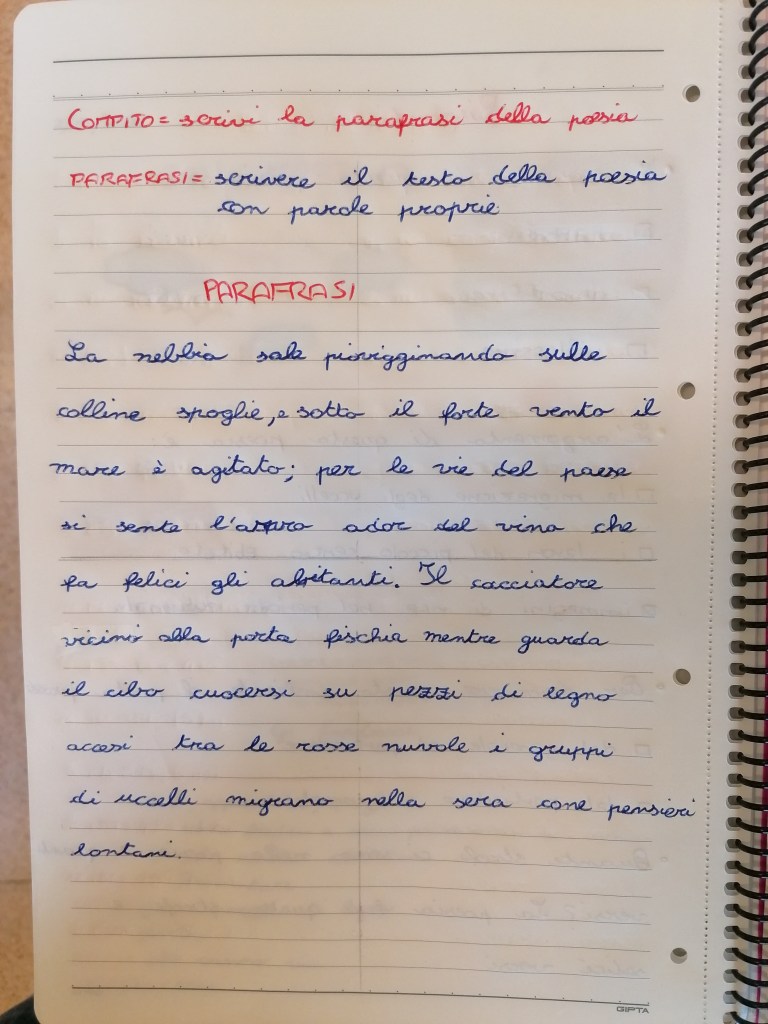 COMPITO = scrivi la parafrasi della poesia
PARAFRASI = scrivere il testo della poesia
con parole proprie
PARAFRASI
La nebbia sale piovigginando sulle
colline spoglie, e sotto il forte vento il
mare è agitato; per le vie del paese
si sente l'aspro odor del vino che
fa felici gli abitanti. Il cacciatore
vicino alla porta fischia mentre guarda
il cibo cuocersi su pezzi di legno
accesi tra le rosse nuvole i gruppi
di uccelli migrano nella sera come pensieri
lontani.
GIPTA